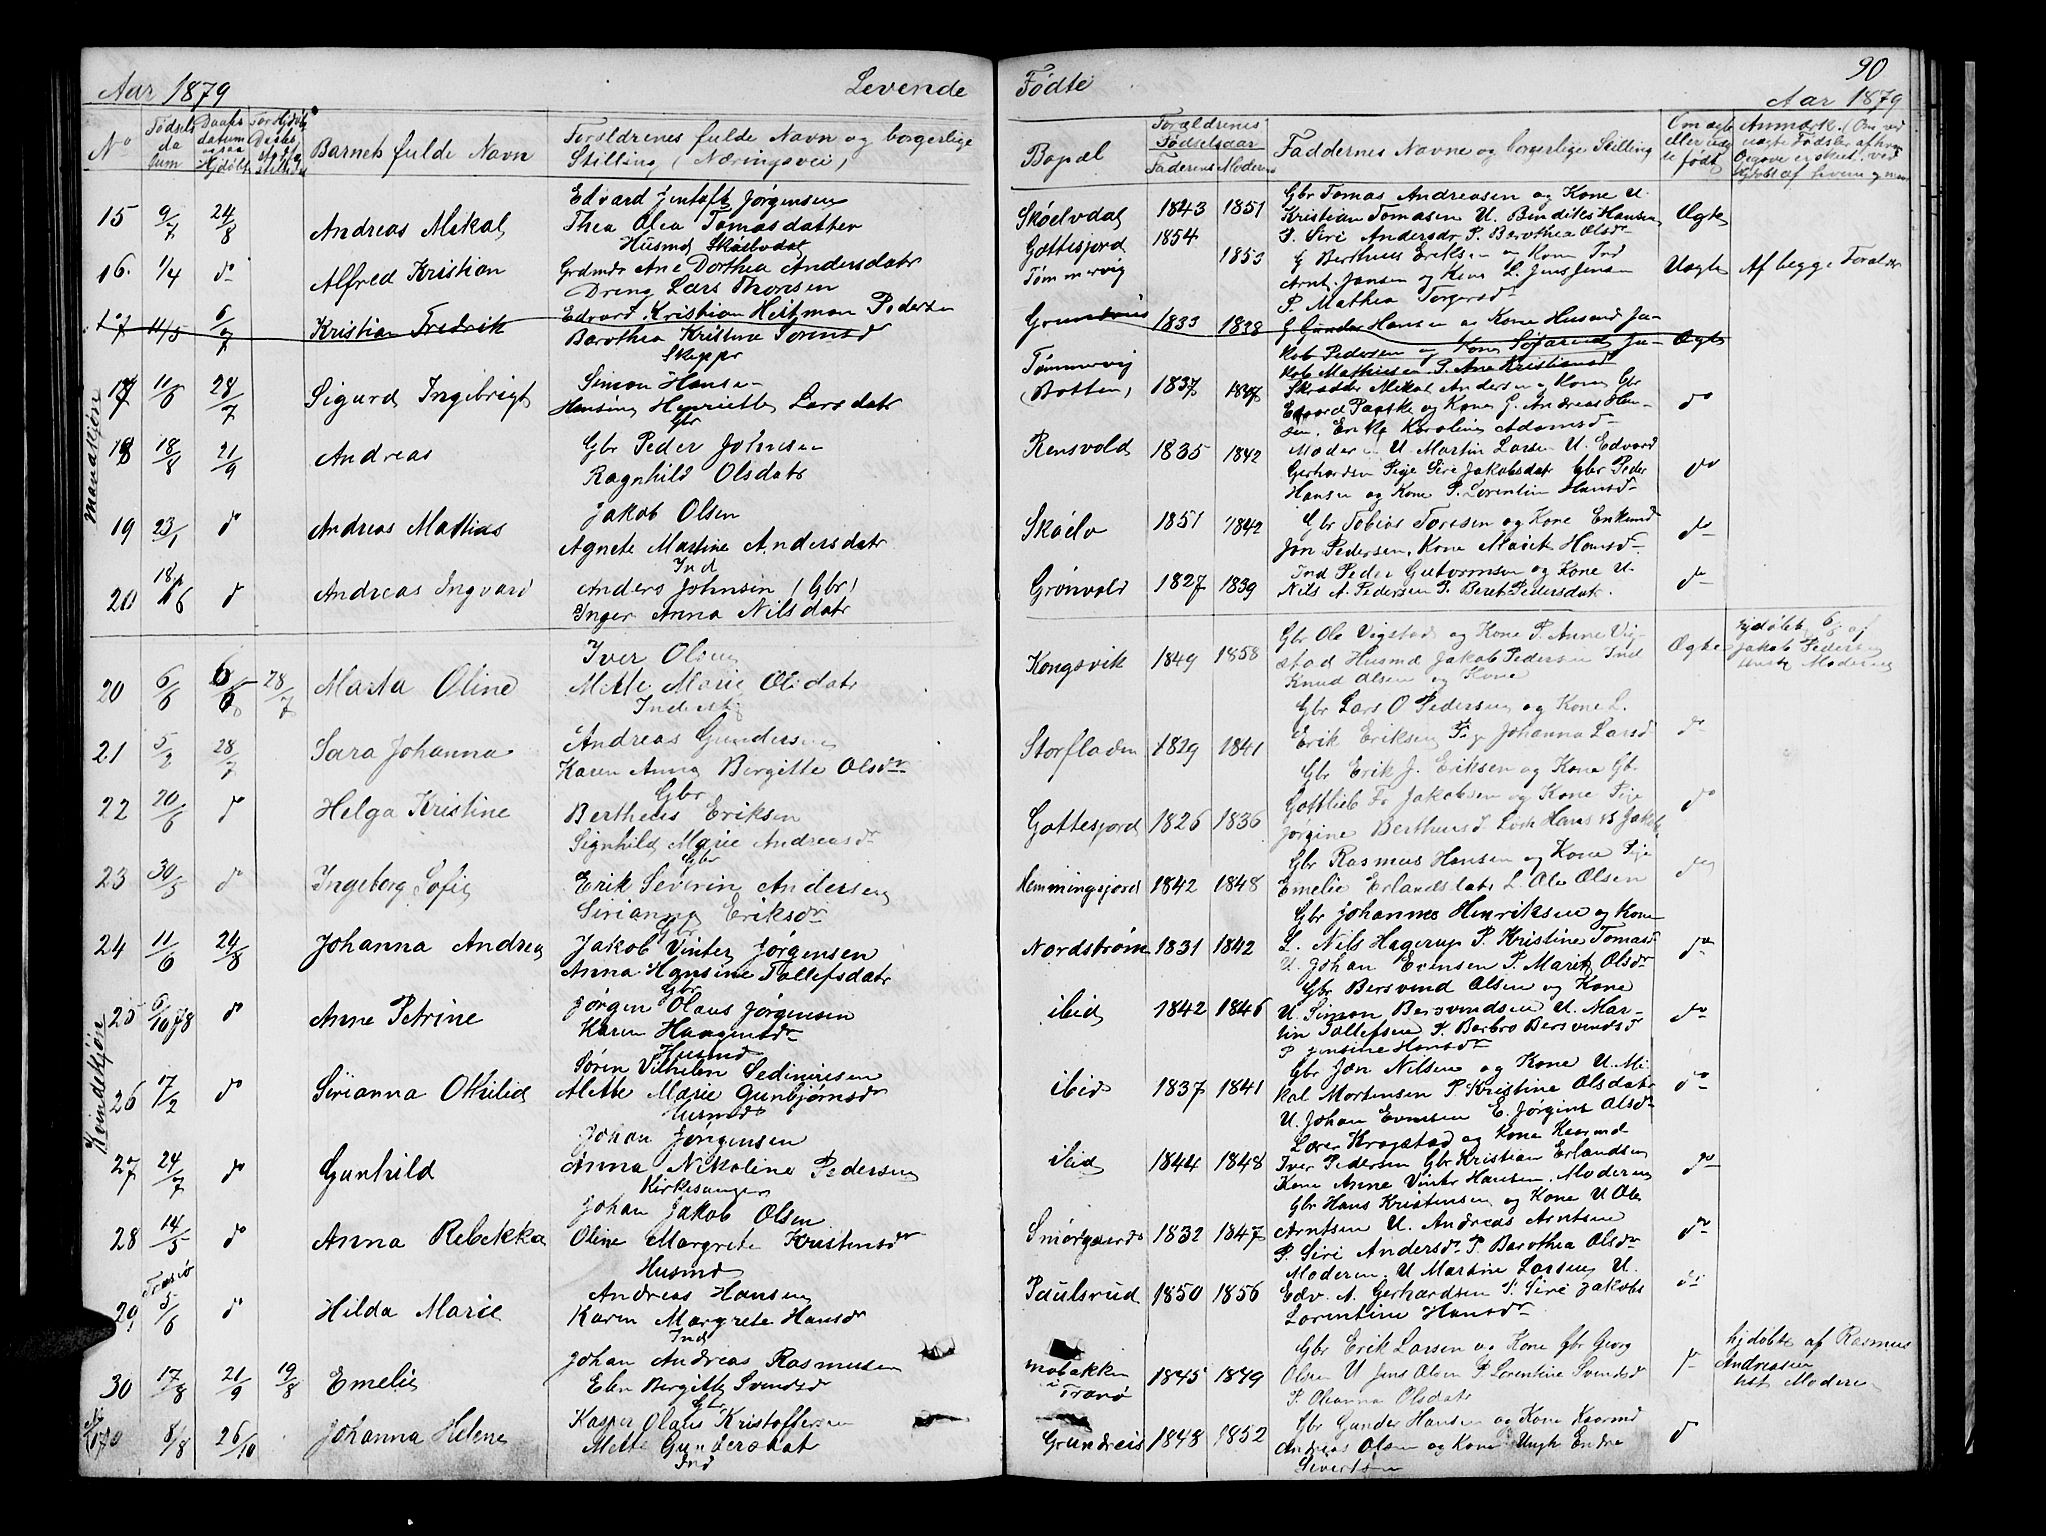 90
Aar 1879 Levende Fødte Aar 1879
No Fødsels datum Daabs datum Barnets fulde Navn Forældrenes fulde Navn og borgerlige Stilling (Næringsvei) Bopæl Forældrenes Fødselsaar Faderens Moderens Faddernes Navne og borgerlige Stilling Om ægte eller uægte født Anmærk.
Mandkjøn
Edvard Jentoft Jørgensen Gbr Tomas Andreasen og Kone U.
15 9/7 24/8 Andreas Mikal Thea Olea Tomasdatter Skøelvdal 1843 1851 Kristian Tomasen U. Bendiks Hansen Ægte
Husmd Skøelvdal Gottesjord 1854 P. Siri Andersdr P. Barothea Olsdr
16. 1/4 do Alfred Kristian Grdmdr Ane Dorthea Andersdatr Tømmervig 1853 G Bertheus Eriksen og Kone Ind Uægte Af begge Forældr
Dreng Lars Thoresen Arnt Jensen og Kone L. Jens Jensen
P. Mathea Torgersdr
17 11/5 6/7 Kristian Fredrik Edvard Kristian Heitman Pedersen Grundreis 1833 1838 G Gunder Hansen og Kone Husmd Ja- Ægte
Barothea Kristina Tommsd kob Pedersen og Kone
Skippr kob Mathiesen P. Ane Kristiansd
17 11/6 28/7 Sigurd Ingebrigt Simon Hansen Tømmervig (Botten) 1837 1837 Skrædder Mikal Andersen og Kone Gbr do
Hansine Henriette Larsdatr Edvard Paaske og Kone G. Andreas Han-
Gbr sen. Enke Karoline Adamsd
18 18/8 21/9 Andreas Gbr Peder Johnsen Rensvold 1835 1842 Moderen U Martin Larsen U. Edvard do
Ragnhild Olsdatr Gerhardsen Pige Siri Jakobsdat Gbr Peder
Hansen og Kone P. Lorentin Hansdr
19 23/1 do Andreas Mathias Jakob Olsen Skøelv 1851 1842 Gbr Tobias Toresen og Kone Enkemd do
Agnete Martine Andersdatr Jon Pedersen, Kone Marit Hansdr
Ind
20 18/6 do Andreas Ingvard Anders Johnsen (Gbr) Grønvold 1827 1839 Ind Peder Guttormsen og Kone U. do
Inger Anna Nilsdatr Nils A. Pedersen P. Beret Pedersdatr.
Kvindekjøn
20 6/6 6/6 28/7 Marta Oline Iver Olsen Kongsvik 1849 1858 Gbr Ole Vigstad og Kone P. Anne Vig- Ægte hjdøbt 6/6 af
Mette Marie Olsdatr stad Husmd Jakob Pedersen Ind Jakob Pedersen
Inderstg Knud Olsen og Kone Moderen
21 5/2 28/7 Sara Johanna Andreas Gundersen Storfladen 1829 1841 Gbr Lars O Pedersen og Kone L. do
Karen Anna Bergitte Olsdr Erik Eriksen Pige Johanna Larsd
Gbr
22 20/6 do Helga Kristine Bertheus Eriksen Gottesjord 1826 1836 Gbr Erik J. Eriksen og Kone Gbr do
Signhild Marie Andreasdr Gottlieb Fr Jakobsen og Kone Pige
Gbr Jørgine Bertheus d
23 30/5 do Ingeborg Sofie Erik Severin Andersen Hemmingsjord 1842 1848 Gbr Rasmus Hansen og Kone Pige do
Sirianna Eriksdr Emelie Erlandsdatr L. Ole Olsen
Gbr Gbr Johannes Henriksen og Kone
24 11/6 24/8 Johanna Andrea Jakob Vinter Jørgensen Nordstrøm 1831 1842 L. Nils Hagerup P. Kristine Tomasd do
Anna Hansine Tollefsdatr U. Johan Evensen P. Marit Olsdr
Gbr Gbr Bersvend Olsen og Kone
25 6/10 78 do Anne Petrine Jørgen Olaus Jørgensen ibid 1842 1846 U. Simon Bersvendsen U. Mar- do
Karen Haagensdr tin Tollefsen P. Berbro Bersvendsd
Husmd P Jensine Hansdr
26 17/2 do Sirianna Otkilie Søren Vilhelm Sediniusen ibid 1837 1841 Gbr Jon Nilsen og Kone U. Mi- do
Mette Marie Gunbjørnsdr kal Mortensen P. Kristine Olsdatr
Husmd U. Johan Evensen E. Jørgine Olsdr
27 24/7 do Gunhild Johan Jørgensen ibid 1844 1848 Lærer Krogstad og Kone Kaarmd do
Anna Nikoline Pedersen Iver Pedersen Gbr Kristian Erlandsen
Kirkesanger Kone Anne Vinter Hansen. Moderen
28 14/5 do Anna Rebekka Johan Jakob Olsen Smørgaard 1832 1847 Gbr Hans Kristensen og Kone U Ole do
Oline Margrete Kristensdr Arntsen U. Andreas Arntsen
Husmd P. Siri Andersdr P. Barothea Olsdr
Tranø
29 5/6 do Hilda Marie Andreas Hansen Paulsrud 1850 1856 Moderen. U Martin Larsen U. do
Karen Margrete Hansdr Edv. A. Gerhardsen P. Siri Jakobs
Ind Lorentine Hansdr
30 17/8 21/9 19/8 Emelie Johan Andreas Rasmusen Mobakken i Tranø 1845 1849 Gbr Erik Larsen og Kone Gbr Georg do hjdøbte af Rasmus
Elen Bergitte Svendsd Olsen U Jens Olsen P Lorentine Svendsd Andreasen
Gbr P. Oleanna Olsdatr hst Moderen
8/8 26/10 Johanna Helene Kasper Olaus Kristoffersen Grundreis 1848 1852 Gbr Gunder Hansen og Kone Kaarmd do
Mette Gundersdat Andreas Olsen og Kone Ungk Endre
Ind Sivertsen